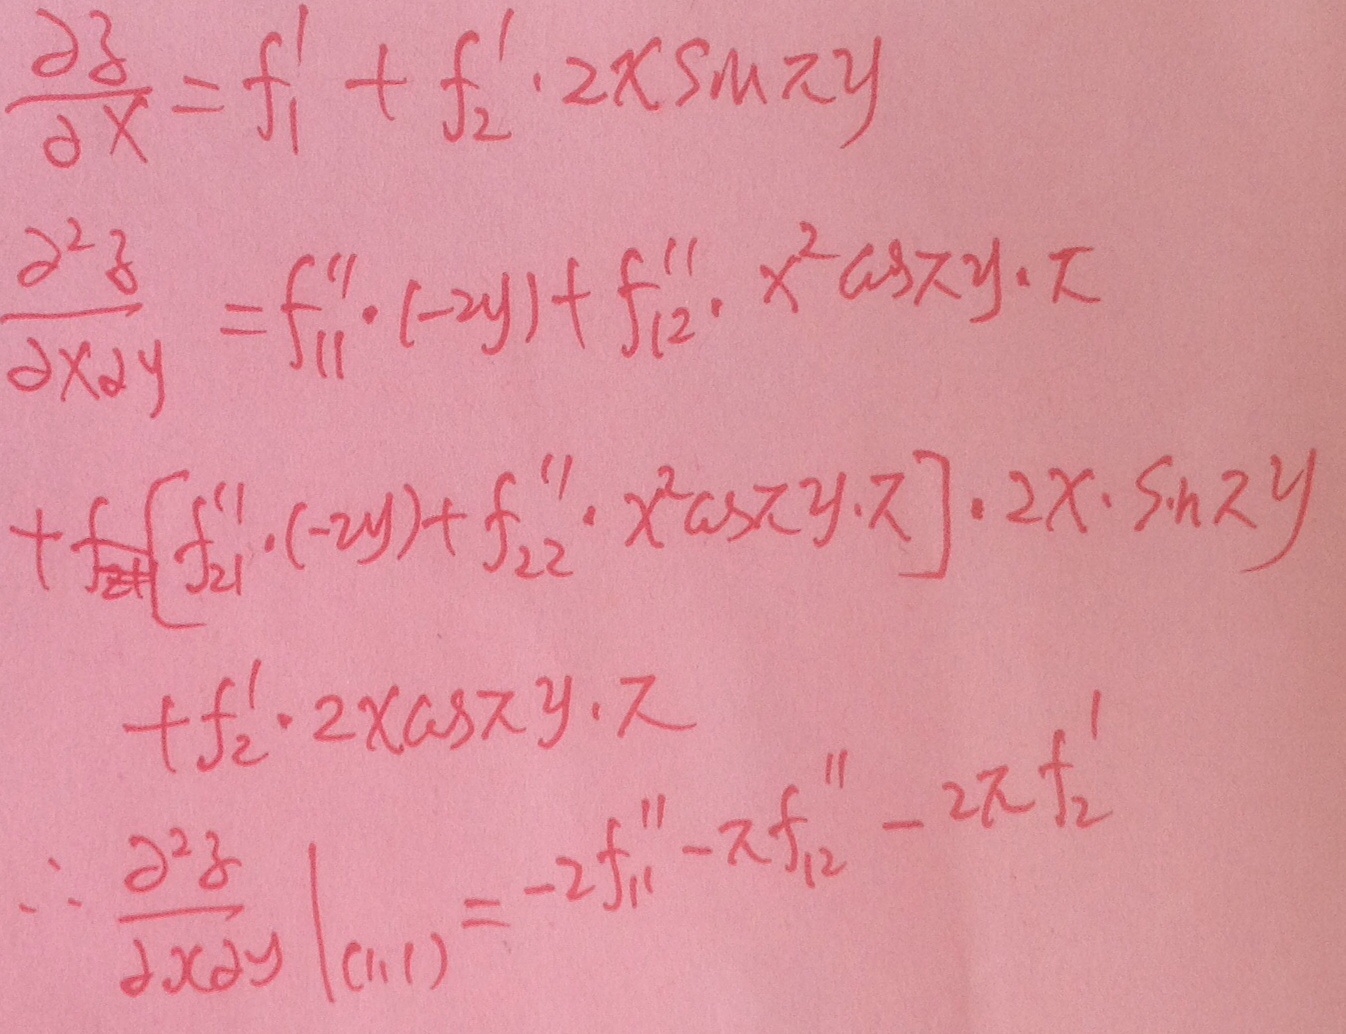 ∂z/∂x = f₁′ + f₂′ · 2x sin πy
∂²z/∂x∂y = f₁₁″ · (-2y) + f₁₂″ · x² cos πy · π
+ [f₂₁″ · (-2y) + f₂₂″ · x² cos πy · π] · 2x · sin πy
+ f₂′ · 2x cos πy · π
∴ ∂²z/∂x∂y |(1,1) = -2f₁₁″ - πf₁₂″ - 2πf₂′